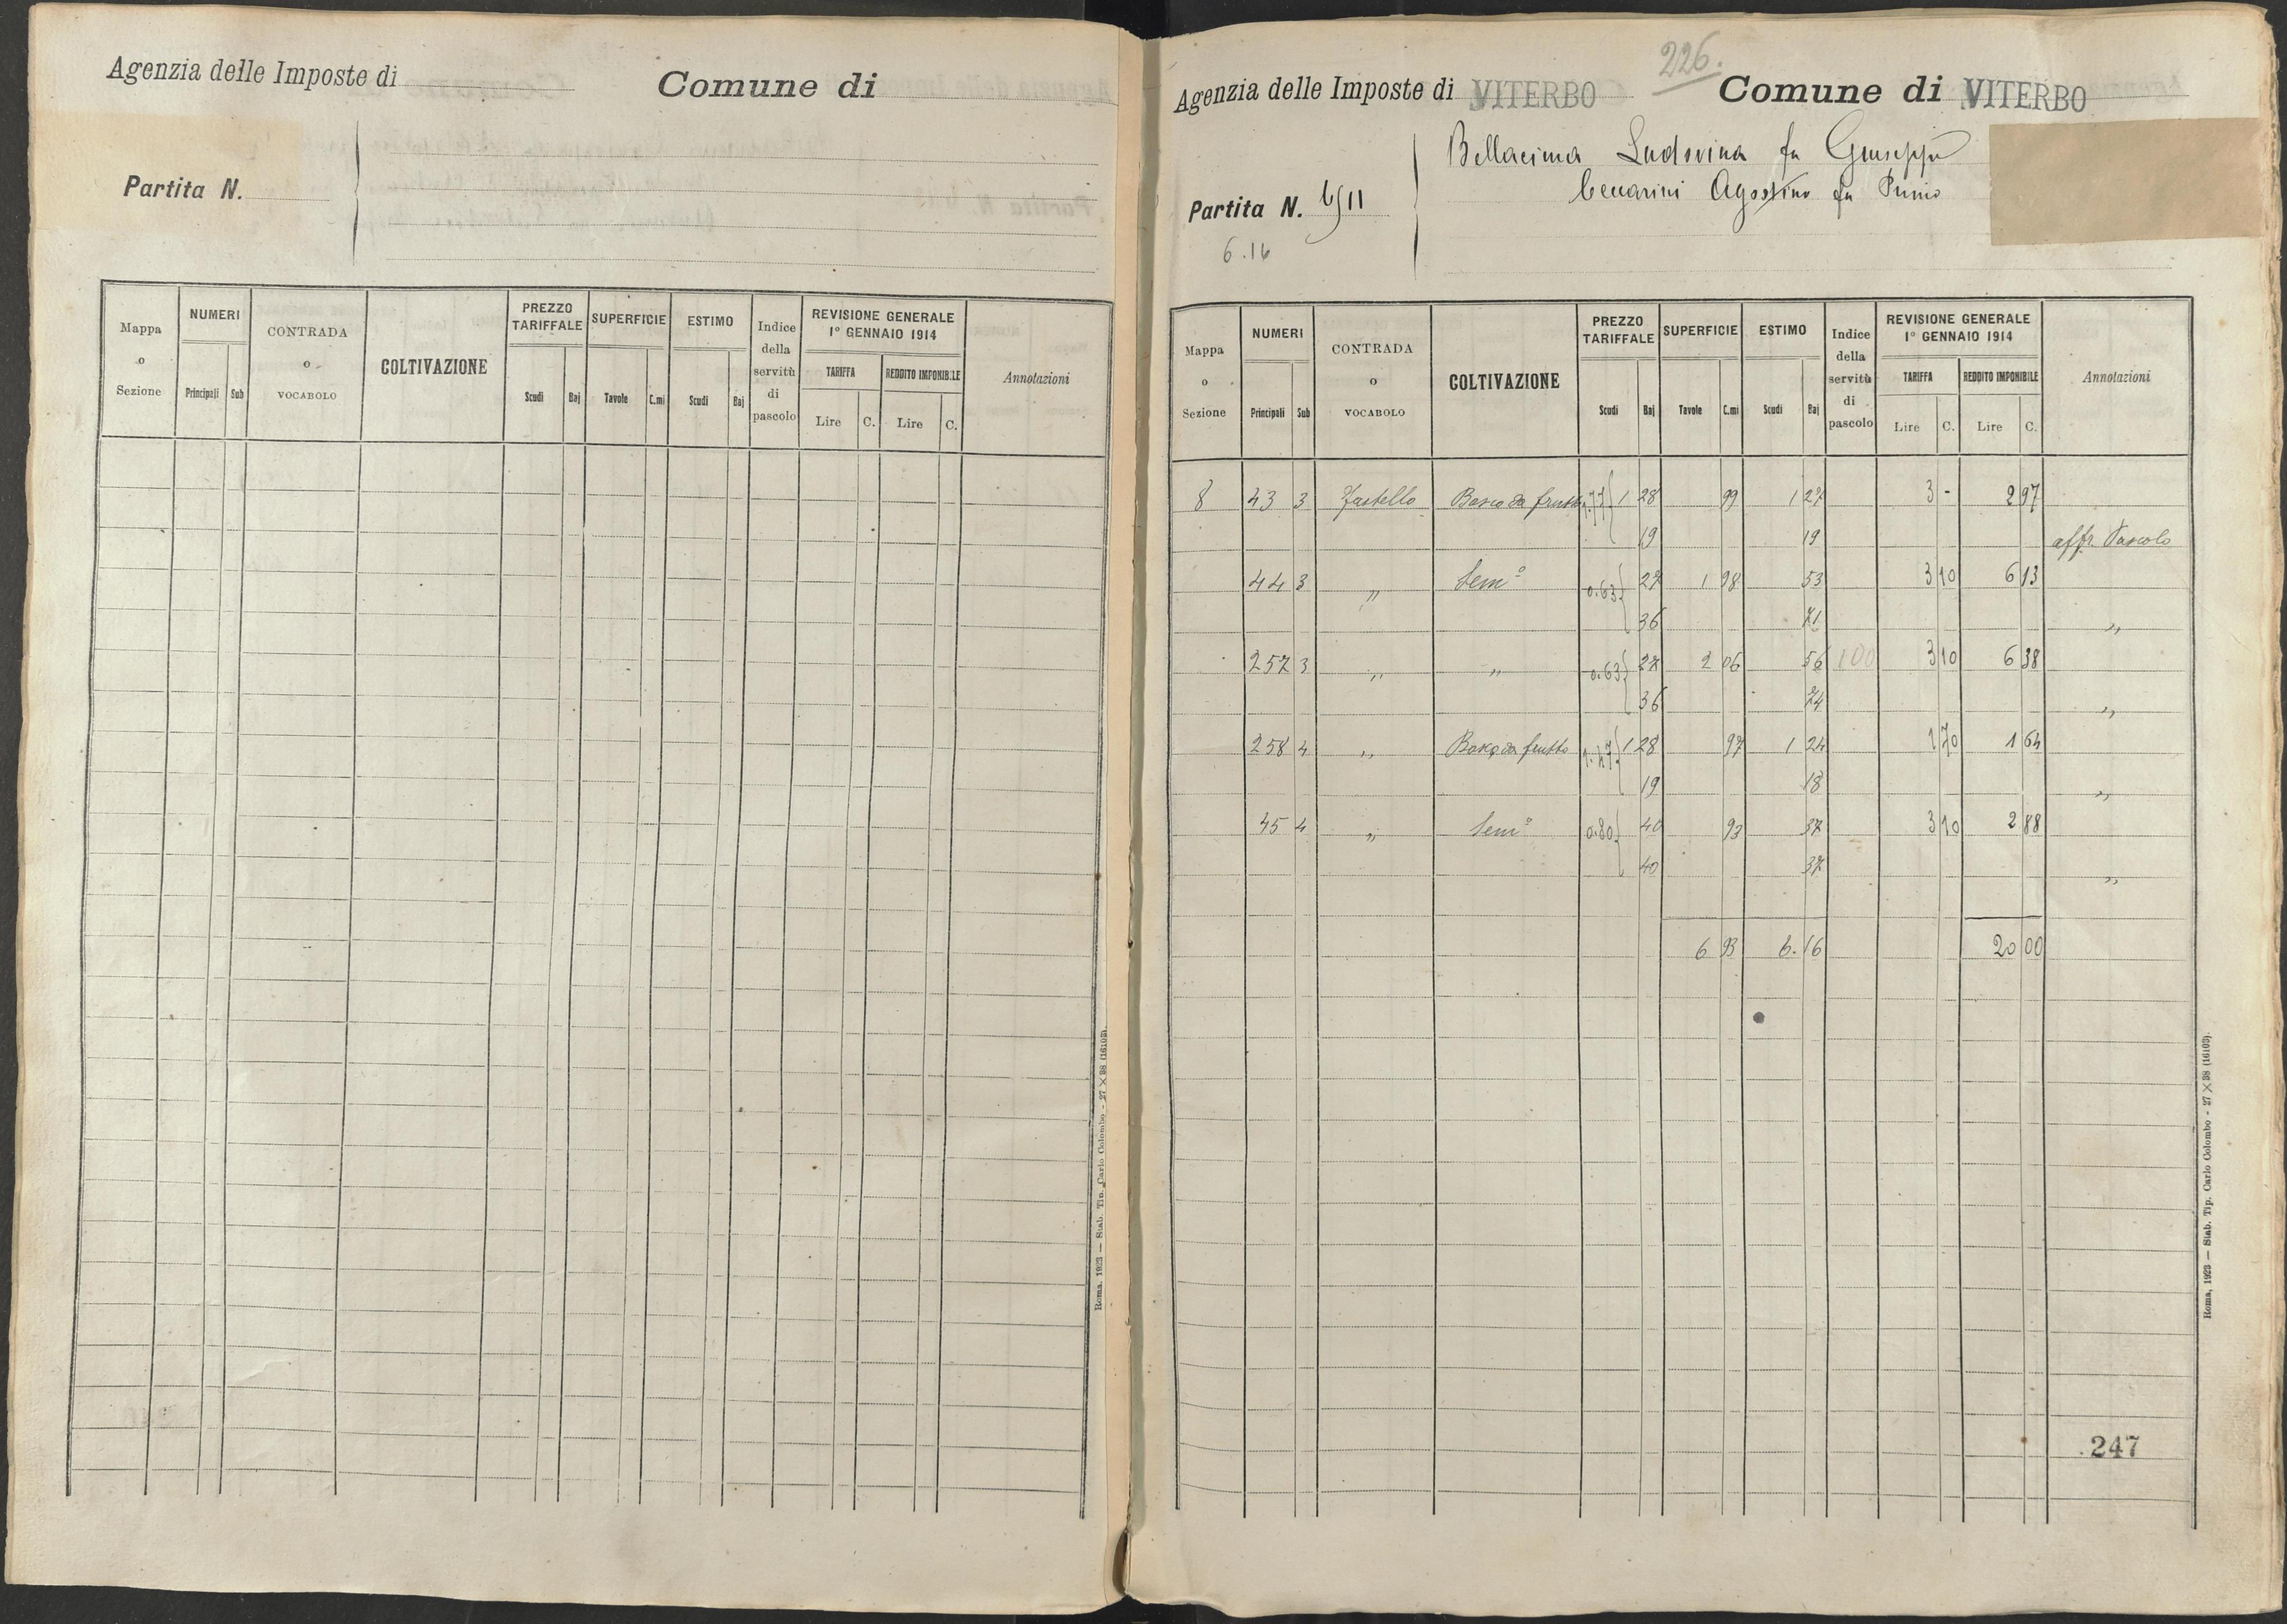 Agenzia delle Imposte di
Comune di
Partita N.
Mappa o Sezione
NUMERI
Principali Sub
CONTRADA o VOCABOLO
COLTIVAZIONE
PREZZO TARIFFALE
Scudi Baj
SUPERFICIE
Tavole C.mi
ESTIMO
Scudi Baj
Indice della servitù di pascolo
REVISIONE GENERALE 1° GENNAIO 1914
TARIFFA
Lire C.
REDDITO IMPONIBILE
Lire C.
Annotazioni
Roma, 1923 — Stab. Tip. Carlo Colombo - 27 × 38 (16103).
226.
Agenzia delle Imposte di VITERBO
Comune di VITERBO
Bellacima Ludovina fu Giuseppe
Ceccarini Agostino fu Primo
Partita N.
6.16
Mappa o Sezione
NUMERI
Principali Sub
CONTRADA o VOCABOLO
COLTIVAZIONE
PREZZO TARIFFALE
Scudi Baj
SUPERFICIE
Tavole C.mi
ESTIMO
Scudi Baj
Indice della servitù di pascolo
REVISIONE GENERALE 1° GENNAIO 1914
TARIFFA
Lire C.
REDDITO IMPONIBILE
Lire C.
Annotazioni
8 43 3 Bosco da frutto 1 28 99 1 27 3 - 2 97
19 19 affr. Pascolo
44 3 „ Sem° 0.63 27 1 98 53 3 10 6 13
36 71 „
257 3 „ „ 0.63 27 2 06 56 100 3 10 6 38
36 74 „
258 4 „ Bosco da frutto 1.47 1 28 97 1 24 1 70 1 64
19 18 „
45 4 „ Sem° 0.80 40 93 37 3 10 2 88
40 37 „
6 93 6.16 20 00
247
Roma, 1923 — Stab. Tip. Carlo Colombo - 27 × 38 (16103).